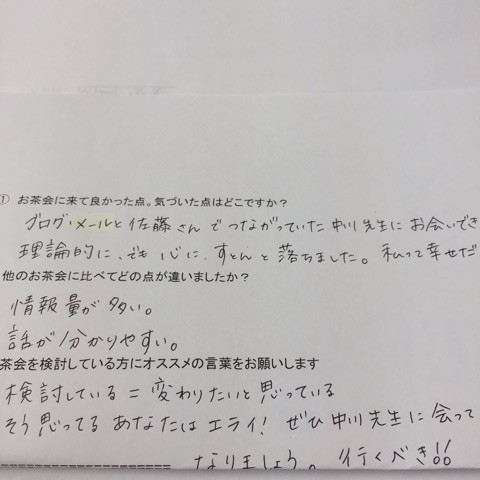 ① お茶会に来て良かった点。気づいた点はどこですか？
ブログ・メールと佐藤さんでつながっていた中川先生にお会いでき
理論的に、でも心に、すとんと落ちました。私って幸せだ
他のお茶会に比べてどの点が違いましたか？
情報量が多い。
話が分かりやすい。
茶会を検討している方にオススメの言葉をお願いします
検討している＝変わりたいと思っている
そう思ってるあなたはエライ！ぜひ中川先生に会って
なりましょう。行くべき!!